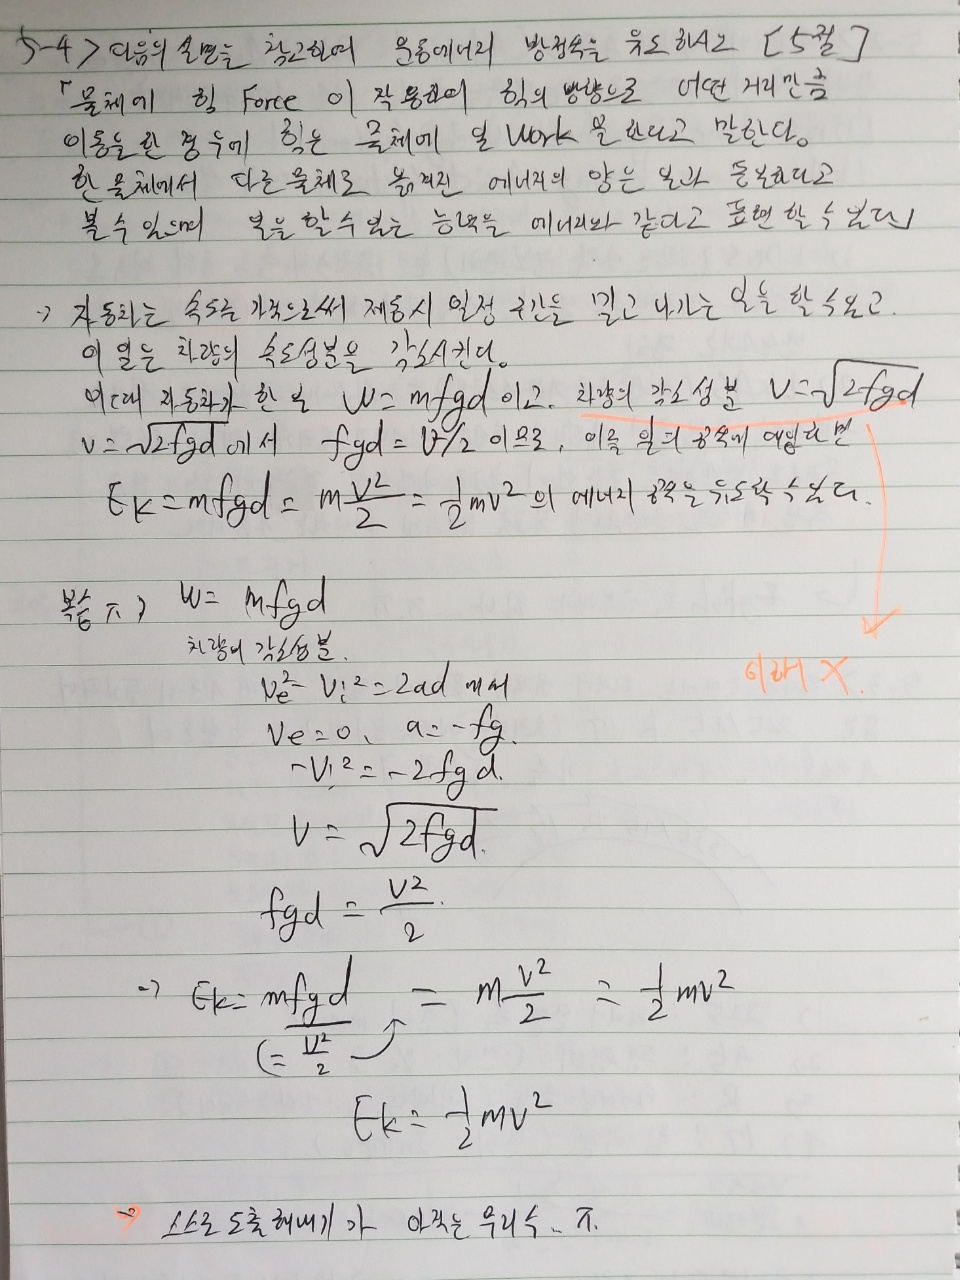 5-4> 다음의 설명을 참고하여 운동에너지 방정식을 유도하시오 [5절]
「물체에 힘 Force 이 작용하여 힘의 방향으로 어떤 거리만큼
이동을 한 경우에 힘은 물체에 일 Work 을 한다고 말한다。
한 물체에서 다른 물체로 옮겨진 에너지의 양은 일과 동일하다고
볼 수 있으며 일을 할 수 있는 능력을 에너지와 같다고 표현 할 수 있다」
→ 자동차는 속도를 가짐으로써 제동시 일정 구간을 밀고 나가는 일을 할 수 있고.
이 일은 차량의 속도성분을 감소시킨다。
이때 자동차가 한 일 W= mfgd 이고. 차량의 감소 성분 V=√2fgd
v=√2fgd 에서 fgd = V²/2 이므로, 이를 일의 공식에 대입하면
Ek = mfgd = m V²/2 = 1/2 mv² 의 에너지 공식을 유도할 수 있다.
복습 π) W= mfgd
차량의 감소성분.
Ve²- Vi² = 2ad 에서
Ve=0、 a=-fg.
-Vi² = -2fgd.
V = √2fgd.
이해 X.
fgd = V²/2.
→ Ek= mfgd = m V²/2 = 1/2 mv²
(= V²/2
Ek= 1/2 mv²
→ 스스로 도출해내기가 아직은 무리수.. π.